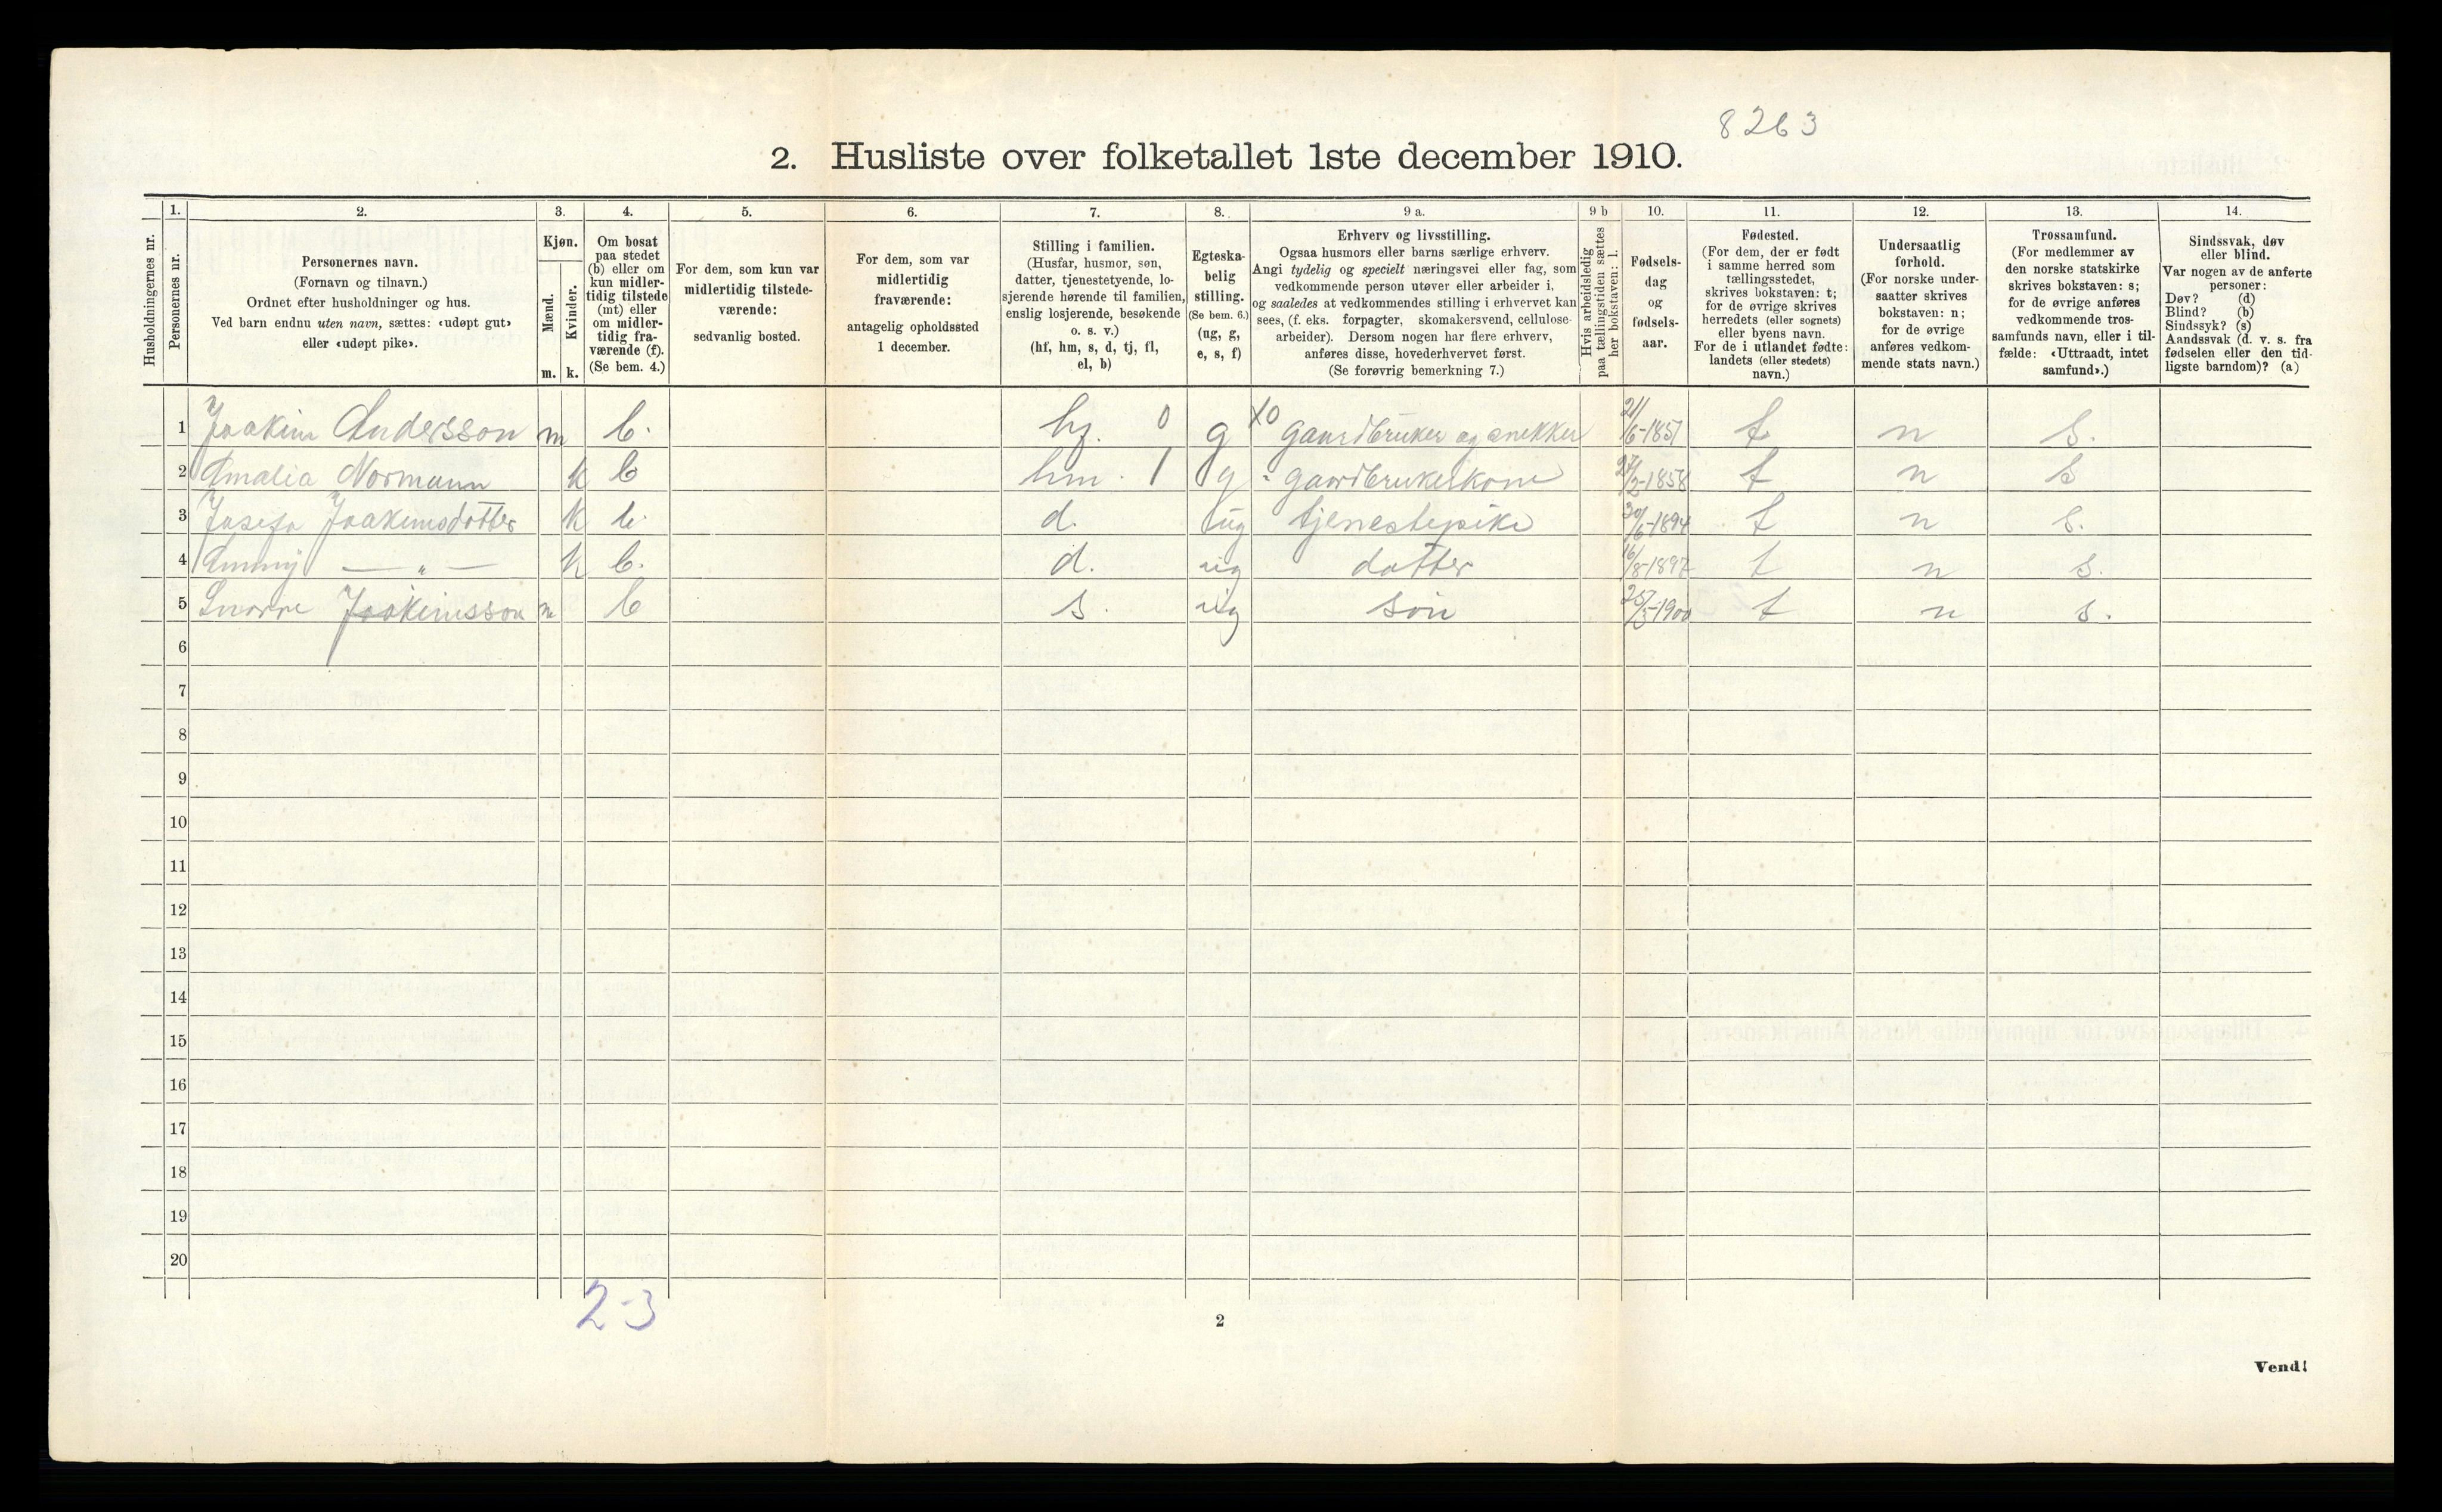 8263
2. Husliste over folketallet 1ste december 1910.
Husholdningernes nr.
1.
Personernes nr.
2.
Personernes navn.
(Fornavn og tilnavn.)
Ordnet efter husholdninger og hus.
Ved barn endnu uten navn, sættes: «udøpt gut»
eller «udøpt pike».
3.
Kjøn.
Mænd.
Kvinder.
m. k.
4.
Om bosat
paa stedet
(b) eller om
kun midler-
tidig tilstede
(mt) eller
om midler-
tidig fra-
værende (f).
(Se bem. 4.)
5.
For dem, som kun var
midlertidig tilstede-
værende:
sedvanlig bosted.
6.
For dem, som var
midlertidig
fraværende:
antagelig opholdssted
1 december.
7.
Stilling i familien.
(Husfar, husmor, søn,
datter, tjenestetyende, lo-
sjerende hørende til familien,
enslig losjerende, besøkende
o. s. v.)
(hf, hm, s, d, tj, fl,
el, b)
8.
Egteska-
belig
stilling.
(Se bem. 6.)
(ug, g,
e, s, f)
9 a.
Erhverv og livsstilling.
Ogsaa husmors eller barns særlige erhverv.
Angi tydelig og specielt næringsvei eller fag, som
vedkommende person utøver eller arbeider i,
og saaledes at vedkommendes stilling i erhvervet kan
sees, (f. eks. forpagter, skomakersvend, cellulose-
arbeider). Dersom nogen har flere erhverv,
anføres disse, hovederhvervet først.
(Se forøvrig bemerkning 7.)
9 b
Hvis arbeidsledig
paa tællingstiden sættes
her bokstaven: l.
10.
Fødsels-
dag
og
fødsels-
aar.
11.
Fødested.
(For dem, der er født
i samme herred som
tællingsstedet,
skrives bokstaven: t;
for de øvrige skrives
herredets (eller sognets)
eller byens navn.
For de i utlandet fødte:
landets (eller stedets)
navn.)
12.
Undersaatlig
forhold.
(For norske under-
saatter skrives
bokstaven: n;
for de øvrige
anføres vedkom-
mende stats navn.)
13.
Trossamfund.
(For medlemmer av
den norske statskirke
skrives bokstaven: s;
for de øvrige anføres
vedkommende tros-
samfunds navn, eller i til-
fælde: «Uttraadt, intet
samfund».)
14.
Sindssvak, døv
eller blind.
Var nogen av de anførte
personer:
Døv? (d)
Blind? (b)
Sindssyk? (s)
Aandssvak (d. v. s. fra
fødselen eller den tid-
ligste barndom)? (a)
1 Joakim Andersson m b. hf. 0 g X0 gaardbruker og snekker 21/6-1857 t n s.
2 Amalia Normann k b hm. 1 g : gaardbrukerkone 27/2-1858 t n s
3 Josefa Joakimsdotter k b. d. ug tjenestepike 30/6-1894 t n s.
4 Ammy — „ — k b. d. ug datter 16/8-1897 t n s.
5 Snorre Joakimsson m b s. ug søn 25/5-1900 t n s.
6
7
8
9
10
11
12
13
14
15
16
17
18
19
20
2-3
2
Vend!